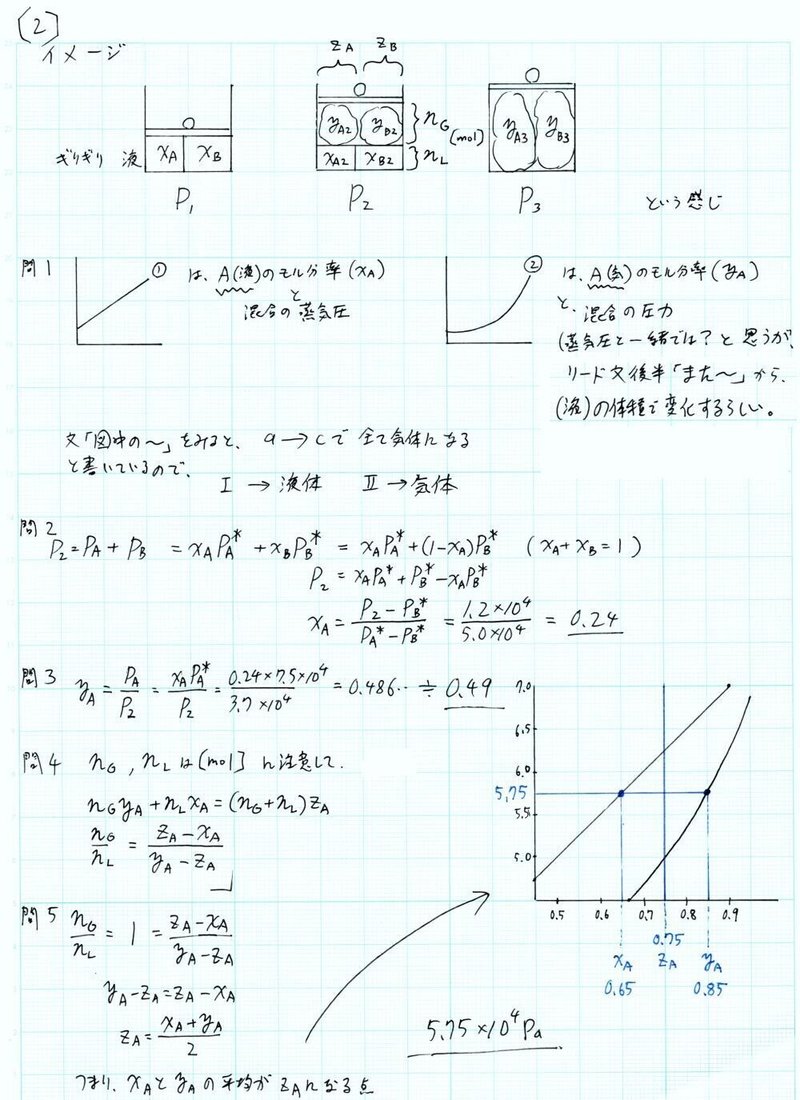 (2)
イメージ
ZA ZB
ぎりぎり 液 xA xB
yA2 yB2 nG
[mol]
xA2 xB2 nL
yA3 yB3
P1 P2 P3
という感じ
問1
①
は、A(液)のモル分率(xA)
と
混合の蒸気圧
②
は、A(気)のモル分率(yA)
と、混合の圧力
(蒸気圧と一緒では?と思うが、
リード文後半「また〜」から、
(液)の体積で変化するらしい。
文「図中の〜」をみると、a→cで全て気体になる
と書いているので、
I → 液体 II → 気体
問2
P2=PA+PB = xAPA* + xBPB* = xAPA*+(1-xA)PB* (xA+xB=1)
P2 = xAPA*+PB*-xAPB*
xA = (P2-PB*)/(PA*-PB*) = 1.2×10⁴/5.0×10⁴ = 0.24
問3 yA = PA/P2 = xAPA*/P2 = 0.24×7.5×10⁴/3.7×10⁴ = 0.486‥ ≒ 0.49
問4 nG, nLは[mol]に注意して.
nGyA+nLxA=(nG+nL)ZA
nG/nL = (ZA-xA)/(yA-ZA)
問5 nG/nL = 1 = (ZA-xA)/(yA-ZA)
yA-ZA=ZA-xA
ZA=(xA+yA)/2
つまり、xAとyAの平均がZAになる点
7.0
6.5
6.0
5.75
5.5
5.0
0.5 0.6 0.7 0.8 0.9
0.75
xA ZA yA
0.65 0.85
5.75×10⁴Pa